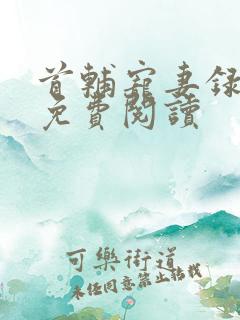 首輔寵妻錄
免費閱讀
可樂街道
未經同意禁止轉載